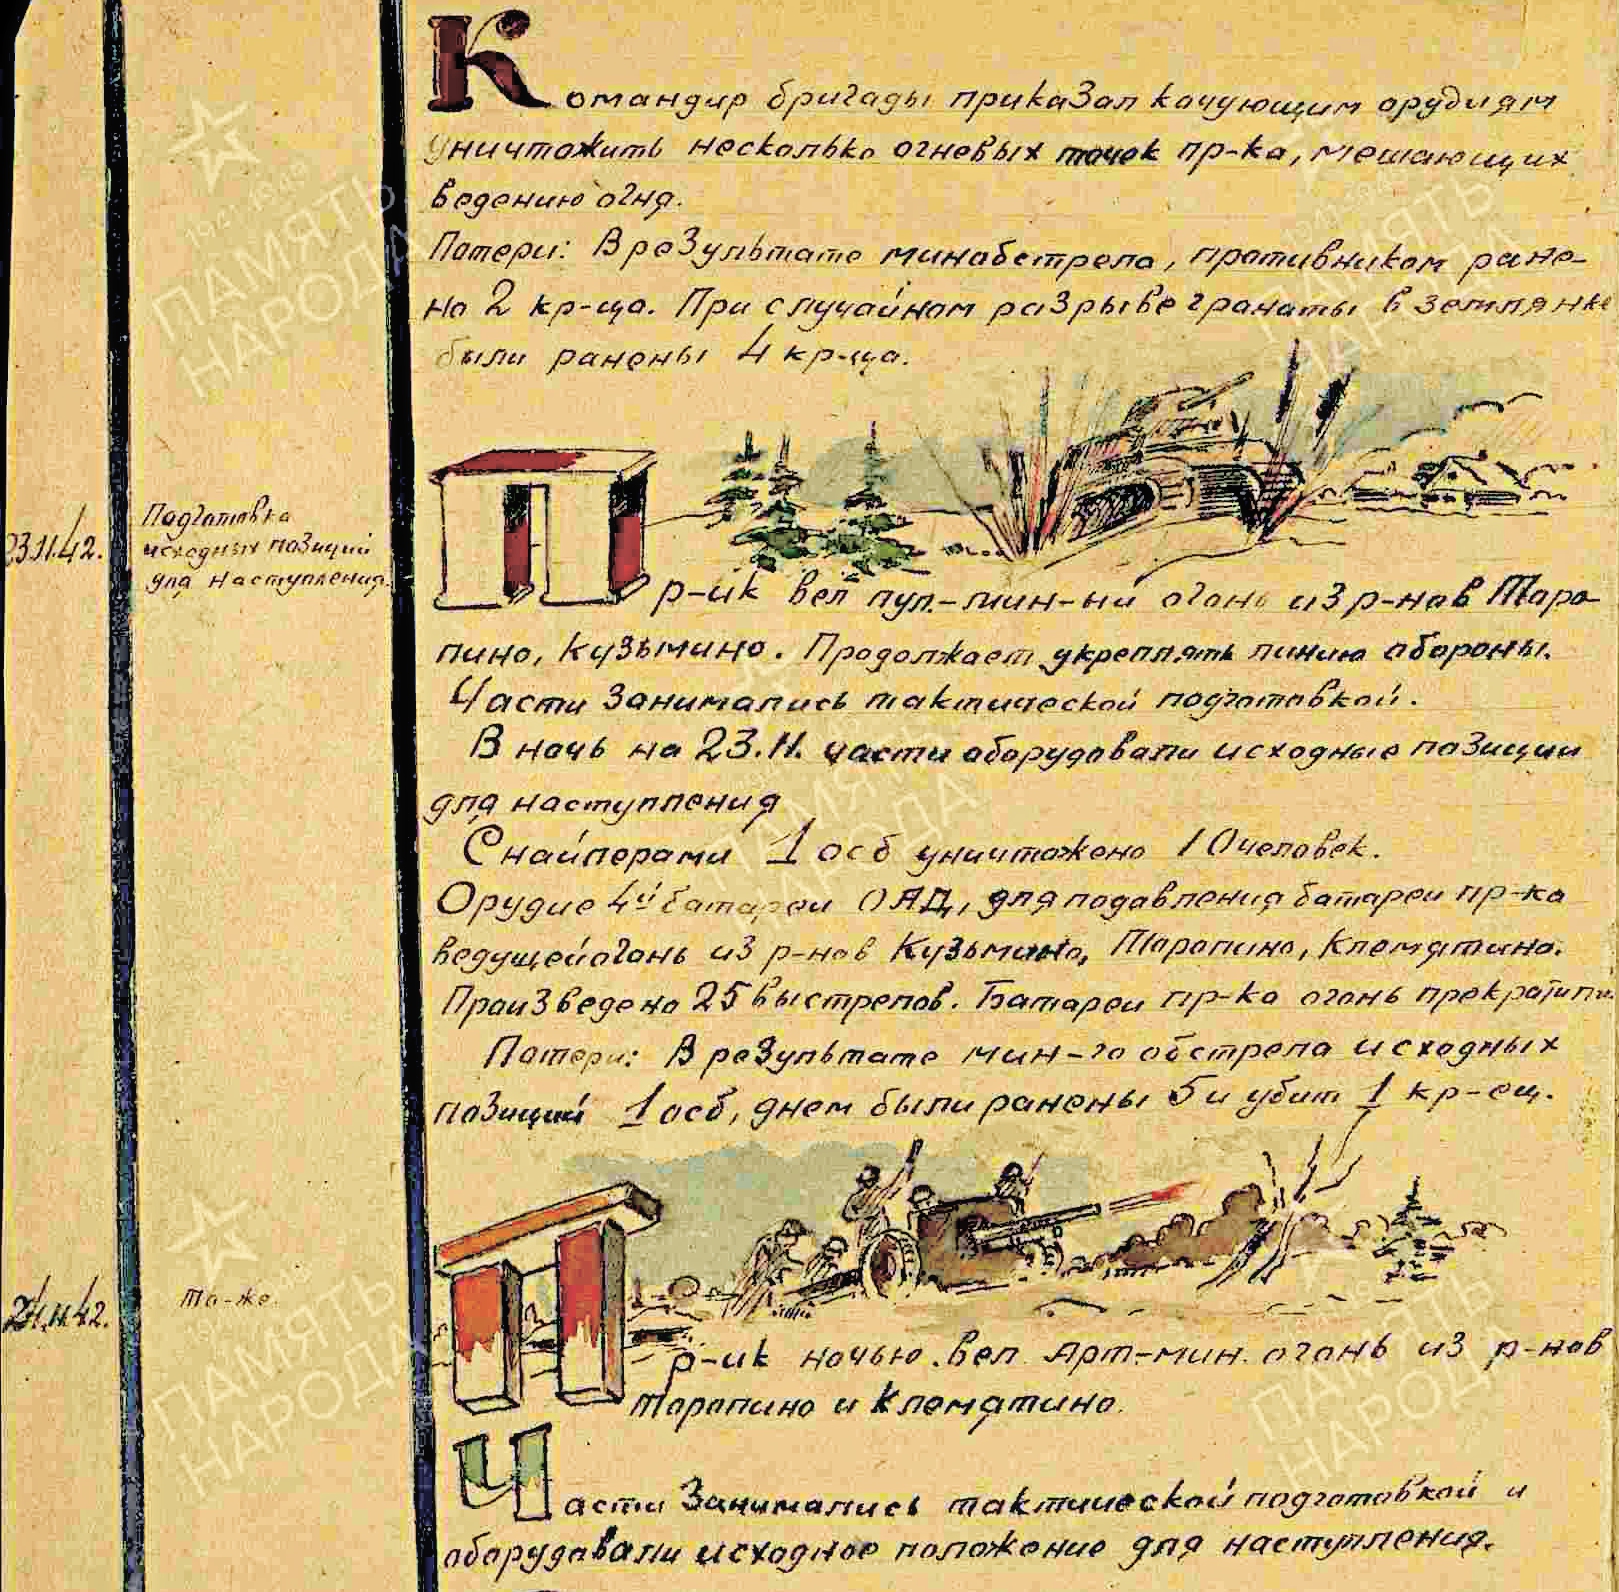 Командир бригады приказал кочующим орудиям
уничтожить несколько огневых точек пр-ка, мешающих
ведению огня.
Потери: В результате минобстрела, противником ране-
но 2 кр-ца. При случайном разрыве гранаты в землянке
были ранены 4 кр-ца.
23.11.42.
Подготовка
исходных позиций
для наступления.
Пр-ик вел пул.-мин-ый огонь из р-нов Тара-
пино, Кузьмино. Продолжает укреплять линию обороны.
Части занимались тактической подготовкой.
В ночь на 23.11. части оборудовали исходные позиции
для наступления
Снайперами 1 осб уничтожено 10 человек.
Орудие 4й батареи ОАД, для подавления батареи пр-ка
ведущей огонь из р-нов Кузьмино, Тарапино, Клемятино.
Произведено 25 выстрелов. Батареи пр-ка огонь прекратили.
Потери: В результате мин-го обстрела исходных
позиций 1 осб, днем были ранены 5 и убит 1 кр-ец.
24.11.42.
То-же.
Пр-ик ночью вел Арт-мин. огонь из р-нов
Тарапино и Клемятино.
Части занимались тактической подготовкой и
оборудовали исходное положение для наступления.
ПАМЯТЬ
НАРОДА
ПАМЯТЬ
НАРОДА
ПАМЯТЬ
НАРОДА
ПАМЯТЬ
НАРОДА
ПАМЯТЬ
НАРОДА